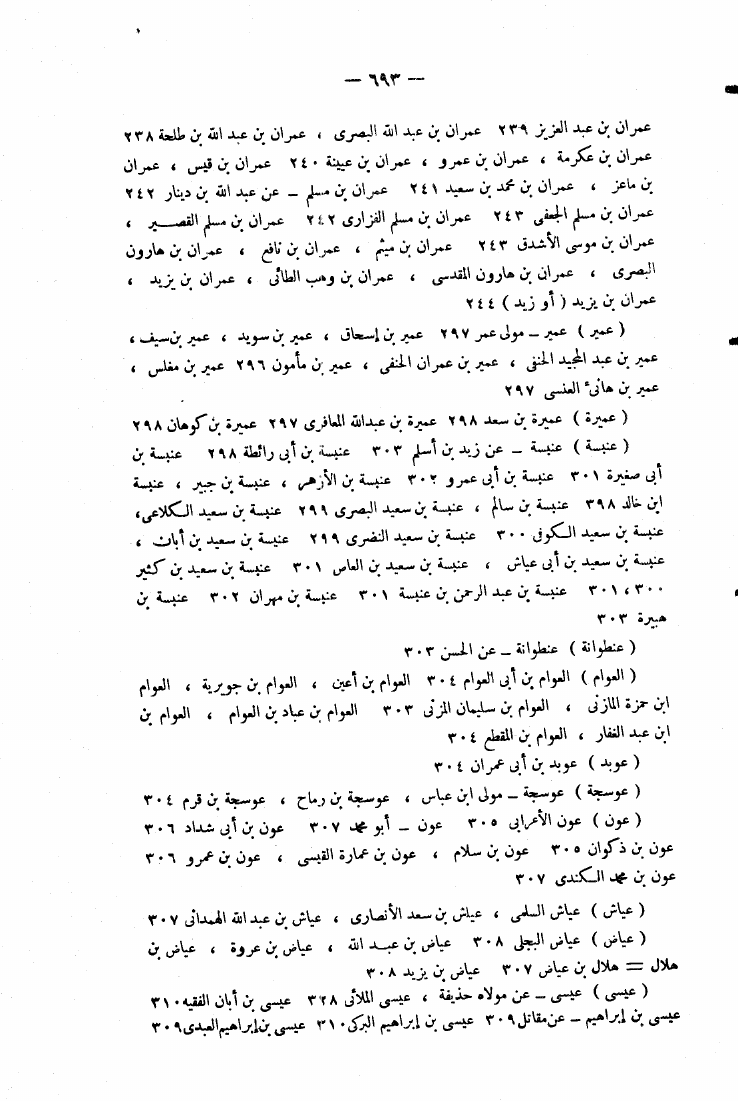 — ٦٩٣ —
عمران بن عبد العزيز ٢٣٩ عمران بن عبد الله البصرى ، عمران بن عبد الله بن طلحة ٢٣٨
عمران بن عكرمة ، عمران بن عمرو ، عمران بن عيينة ٢٤٠ عمران بن قيس ، عمران
بن ماعز ، عمران بن محمد بن سعيد ٢٤١ عمران بن مسلم – عن عبد الله بن دينار ٢٤٢
عمران بن مسلم الجعفى ٢٤٣ عمران بن مسلم الفزارى ٢٤٢ عمران بن مسلم القصـــير ،
عمران بن موسى الأشدق ٢٤٣ عمران بن ميثم ، عمران بن نافع ، عمران بن هارون
البصرى ، عمران بن هارون المقدسى ، عمران بن وهب الطائى ، عمران بن يزيد ،
عمران بن يزيد ( أو زيد ) ٢٤٤
( عمير ) عمير – مولى عمر ٢٩٧ عمير بن إسحاق ، عمير بن سويد ، عمير بن سيف ،
عمير بن عبد المجيد الحنفى ، عمير بن عمران الحنفى ، عمير بن مأمون ٢٩٦ عمير بن مغلس ،
عمير بن هانئ العنسى ٢٩٧
( عميرة ) عميرة بن سعد ٢٩٨ عميرة بن عبدالله المعافرى ٢٩٧ عميرة بن كوهان ٢٩٨
( عنبسة ) عنبسة – عن زيد بن أسلم ٣٠٣ عنبسة بن أبى رائطة ٢٩٨ عنبسة بن
أبى صغيرة ٣٠١ عنبسة بن أبى عمرو ٣٠٢ عنبسة بن الأزهر ، عنبسة بن جبير ، عنبسة
ابن خالد ٣٩٨ عنبسة بن سالم ، عنبسة بن سعيد البصرى ٢٩٩ عنبسة بن سعيد الكلاعى ،
عنبسة بن سعيد الكوفى ٣٠٠ عنبسة بن سعيد النضرى ٢٩٩ عنبسة بن سعيد بن أبان ،
عنبسة بن سعيد بن أبى عياش ، عنبسة بن سعيد بن العاص ٣٠١ عنبسة بن سعيد بن كثير
٣٠٠ ، ٣٠١ عنبسة بن عبد الرحمن بن عنبسة ٣٠١ عنبسة بن مهران ٣٠٢ عنبسة بن
هبيرة ٣٠٣
( عنطوانة ) عنطوانة – عن الحسن ٣٠٣
( العوام ) العوام بن أبى العوام ٣٠٤ العوام بن أعين ، العوام بن جويرية ، العوام
ابن حمزة المازنى ، العوام بن سليمان المزنى ٣٠٣ العوام بن عباد بن العوام ، العوام بن
ابن عبد الغفار ، العوام بن المقطع ٣٠٤
( عوبد ) عوبد بن أبى عمران ٣٠٤
( عوسجة ) عوسجة – مولى ابن عباس ، عوسجة بن رماح ، عوسجة بن قرم ٣٠٤
( عون ) عون الأعرابى ٣٠٥ عون – أبو محمد ٣٠٧ عون بن أبى شداد ٣٠٦
عون بن ذكوان ٣٠٥ عون بن سلام ، عون بن عمارة القيسى ، عون بن عمرو ٣٠٦
عون بن محمد الكندى ٣٠٧
( عياش ) عياش السلمى ، عياش بن سعد الأنصارى ، عياش بن عبد الله الهمدانى ٣٠٧
( عياض ) عياض البجلى ٣٠٨ عياض بن عبـد الله ، عياض بن عروة ، عياض بن
هلال = هلال بن عياض ٣٠٧ عياض بن يزيد ٣٠٨
( عيسى ) عيسى – عن مولاه حذيفة ، عيسى الملائى ٣٢٨ عيسى بن أبان الفقيه ٣١٠
عيسى بن إبراهيم – عن مقاتل ٣٠٩ عيسى بن إبراهيم البركى ٣١٠ عيسى بن إبراهيم العبدى ٣٠٩